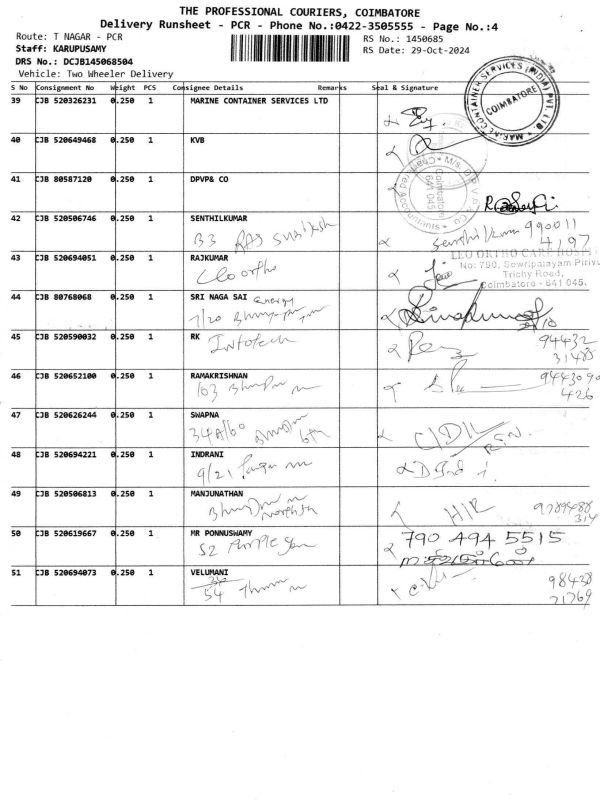 THE PROFESSIONAL COURIERS, COIMBATORE
Delivery Runsheet - PCR - Phone No.:0422-3505555 - Page No.:4
Route: T NAGAR - PCR
RS No.: 1450685
Staff: KARUPUSAMY
RS Date: 29-Oct-2024
DRS No.: DCJB145068504
Vehicle: Two Wheeler Delivery
S No Consignment No Weight PCS Consignee Details Remarks Seal & Signature
39 CJB 520326231 0.250 1 MARINE CONTAINER SERVICES LTD
MARINE CONTAINER SERVICES (INDIA) PVT. LTD
COIMBATORE
40 CJB 520649468 0.250 1 KVB
41 CJB 80587120 0.250 1 DPVP& CO
M/s. D P V P & Co
Coimbatore
641 045
Chartered Accountants
42 CJB 520506746 0.250 1 SENTHILKUMAR
B3 RAJ
Senthilkumar 990011
4197
43 CJB 520694051 0.250 1 RAJKUMAR
Leo ortho
LEO ORTHO CARE HOSPI
No: 790, Sowripalayam Piriv
Trichy Road,
Coimbatore - 641 045.
44 CJB 80768068 0.250 1 SRI NAGA SAI energy
7/20
45 CJB 520590032 0.250 1 RK Infotech
94432
31485
46 CJB 520652100 0.250 1 RAMAKRISHNAN
103
944309
426
47 CJB 520626244 0.250 1 SWAPNA
34A/60
48 CJB 520694221 0.250 1 INDRANI
9/21
49 CJB 520506813 0.250 1 MANJUNATHAN
H/R 9789488
314
50 CJB 520619667 0.250 1 MR PONNUSWAMY
52
790 494 5515
51 CJB 520694073 0.250 1 VELUMANI
54
98428
71769